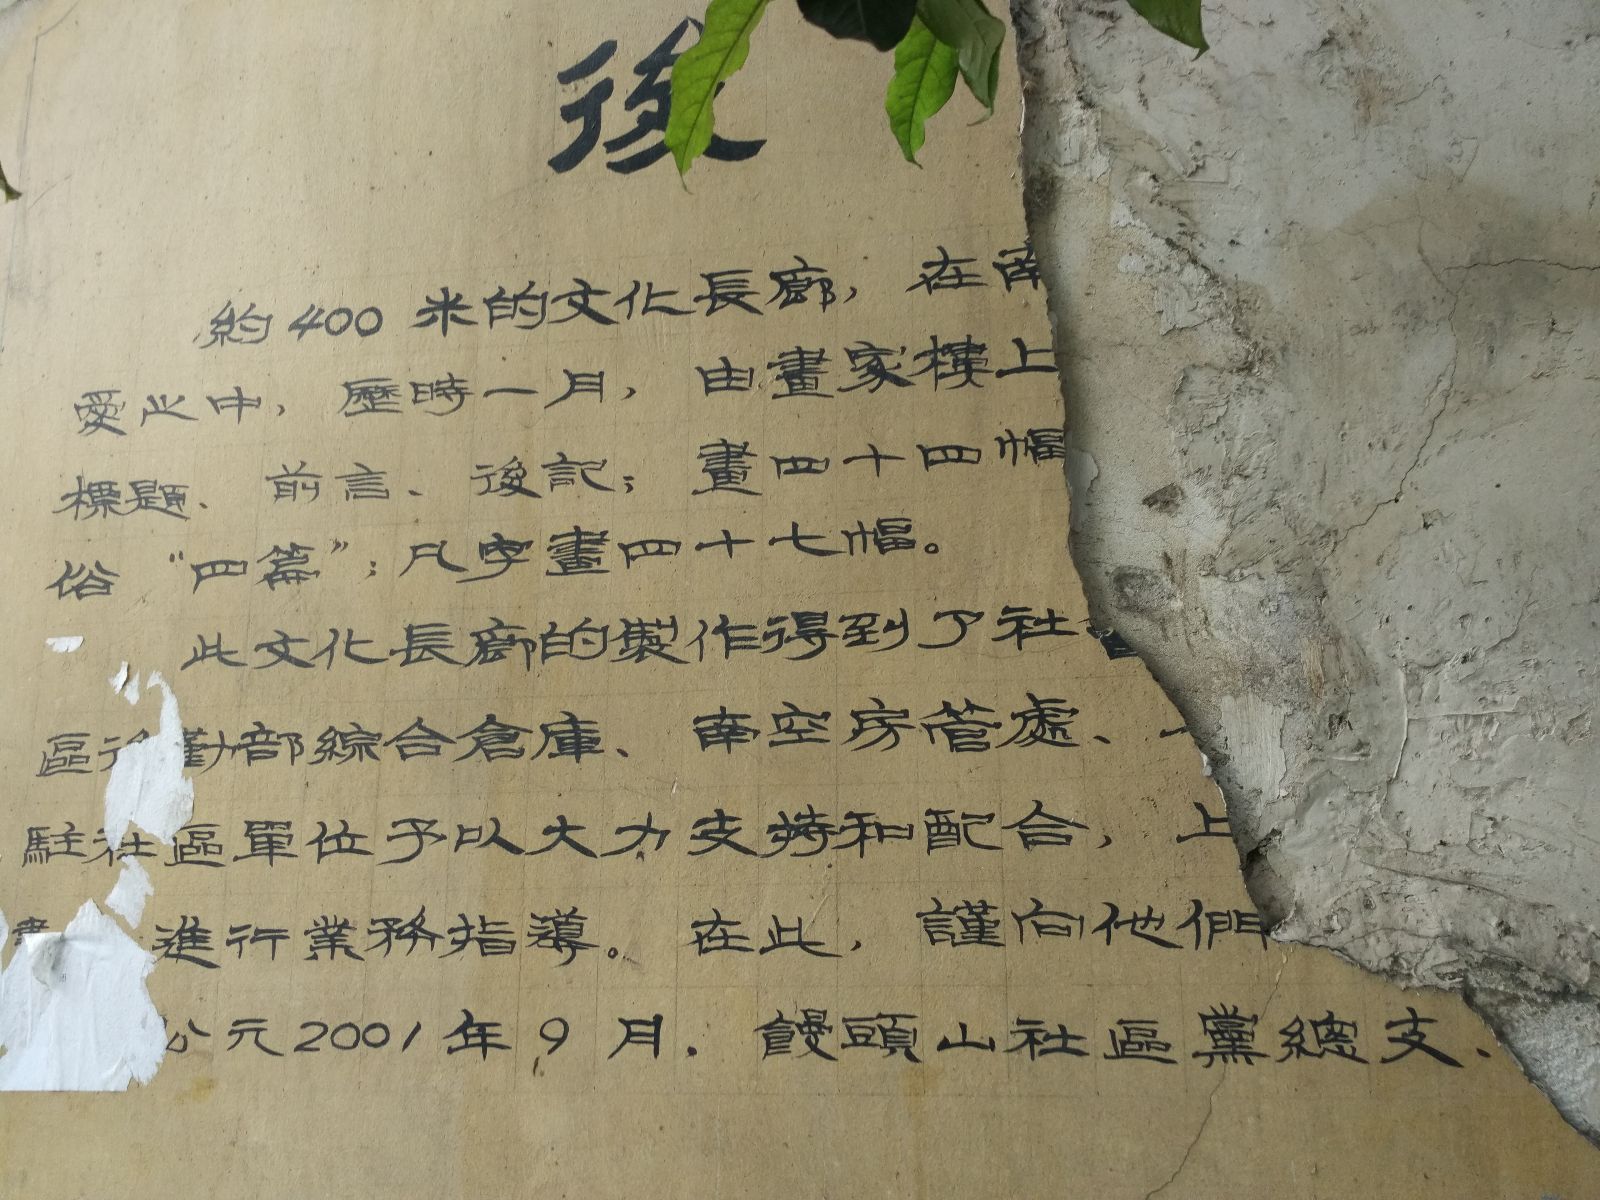 後
約400米的文化長廊，在南
愛此中，歷時一月，由畫家樓上
標題、前言、後記；畫四十四幅
俗“四篇”；凡字畫四十七幅。
此文化長廊的製作得到了社
區後勤部綜合倉庫、南空房管處、
駐社區單位予以大力支持和配合，上
進行業務指導。在此，謹向他們
公元2001年9月．饅頭山社區黨總支．